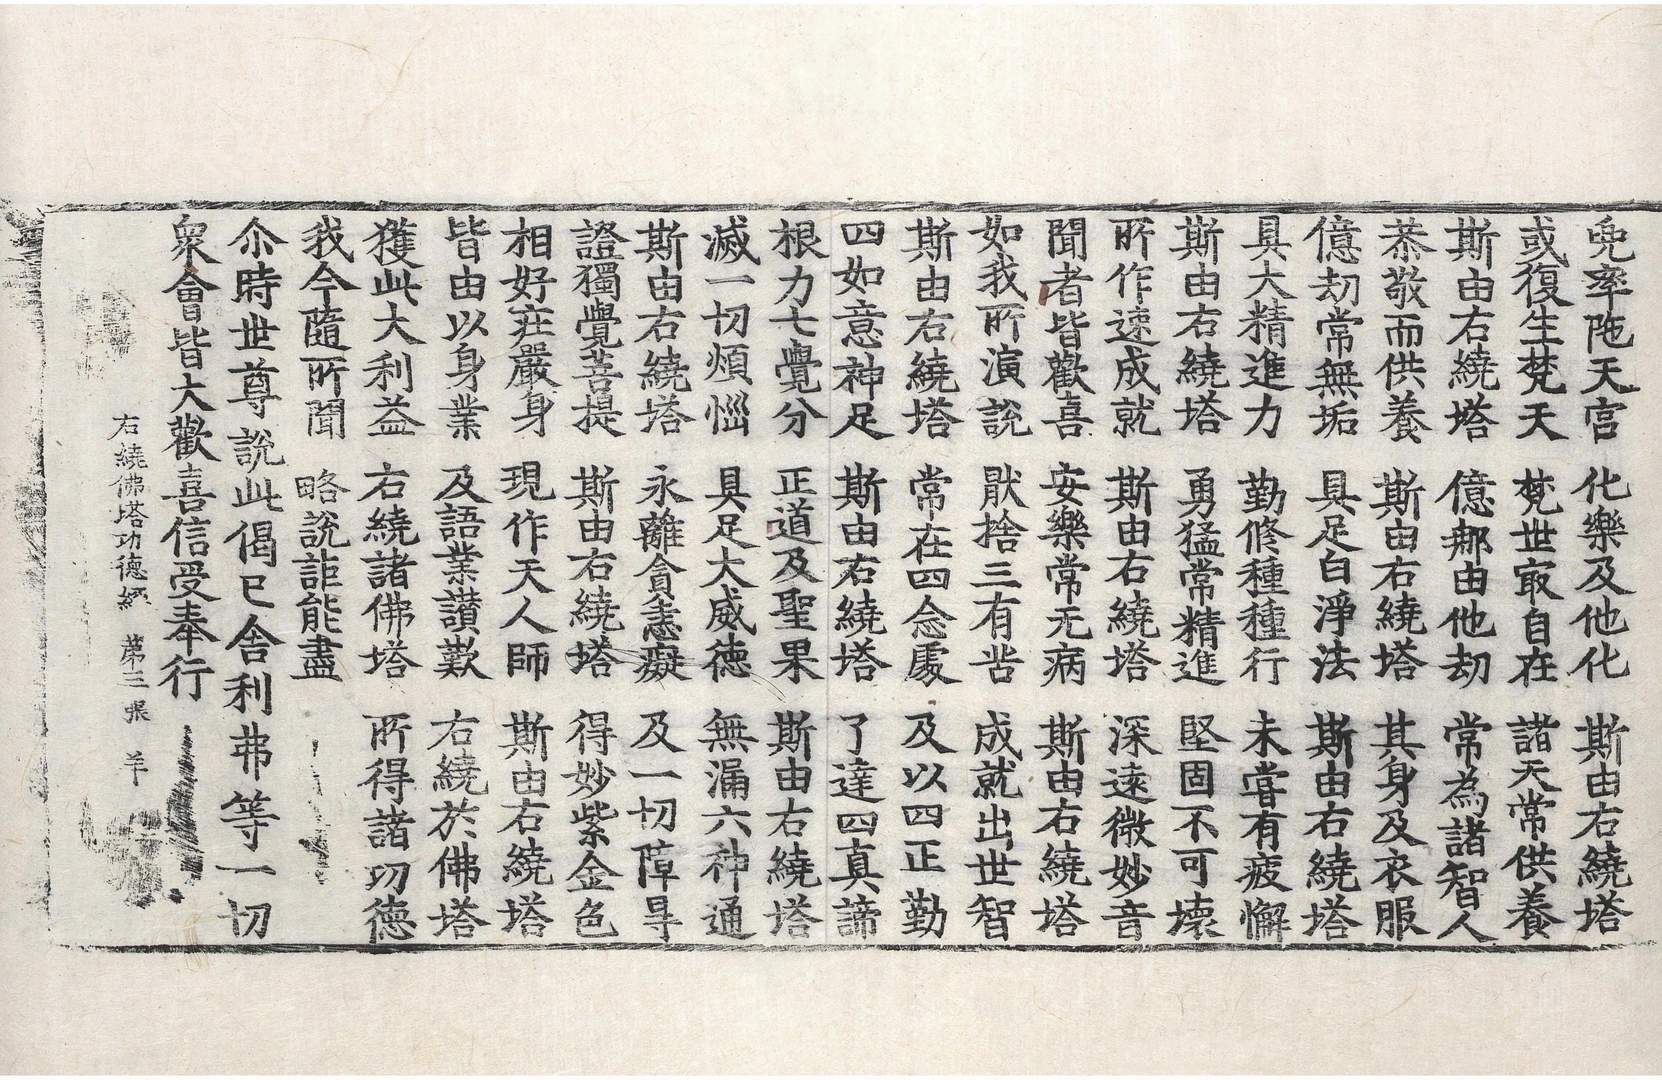 兜率陁天宮 化樂及他化 斯由右繞塔
或復生梵天 梵世㝡自在 諸天常供養
斯由右繞塔 億那由他劫 常為諸智人
恭敬而供養 斯由右繞塔 其身及衣服
億劫常無垢 具足白淨法 斯由右繞塔
具大精進力 勤修種種行 未嘗有疲懈
斯由右繞塔 勇猛常精進 堅固不可壞
所作速成就 斯由右繞塔 深遠微妙音
聞者皆歡喜 安樂常无病 斯由右繞塔
如我所演說 猒捨三有苦 成就出世智
斯由右繞塔 常在四念處 及以四正勤
四如意神足 斯由右繞塔 了達四真諦
根力七覺分 正道及聖果 斯由右繞塔
滅一切煩惱 具足大威德 無漏六神通
斯由右繞塔 永離貪恚癡 及一切障㝵
證獨覺菩提 斯由右繞塔 得妙紫金色
相好莊嚴身 現作天人師 斯由右繞塔
皆由以身業 及語業讃歎 右繞於佛塔
獲此大利益 右繞諸佛塔 所得諸功德
我今隨所聞 略說詎能盡
尒時世尊說此偈已舍利弗等一切
衆會皆大歡喜信受奉行
右繞佛塔功德經 苐三張 羊